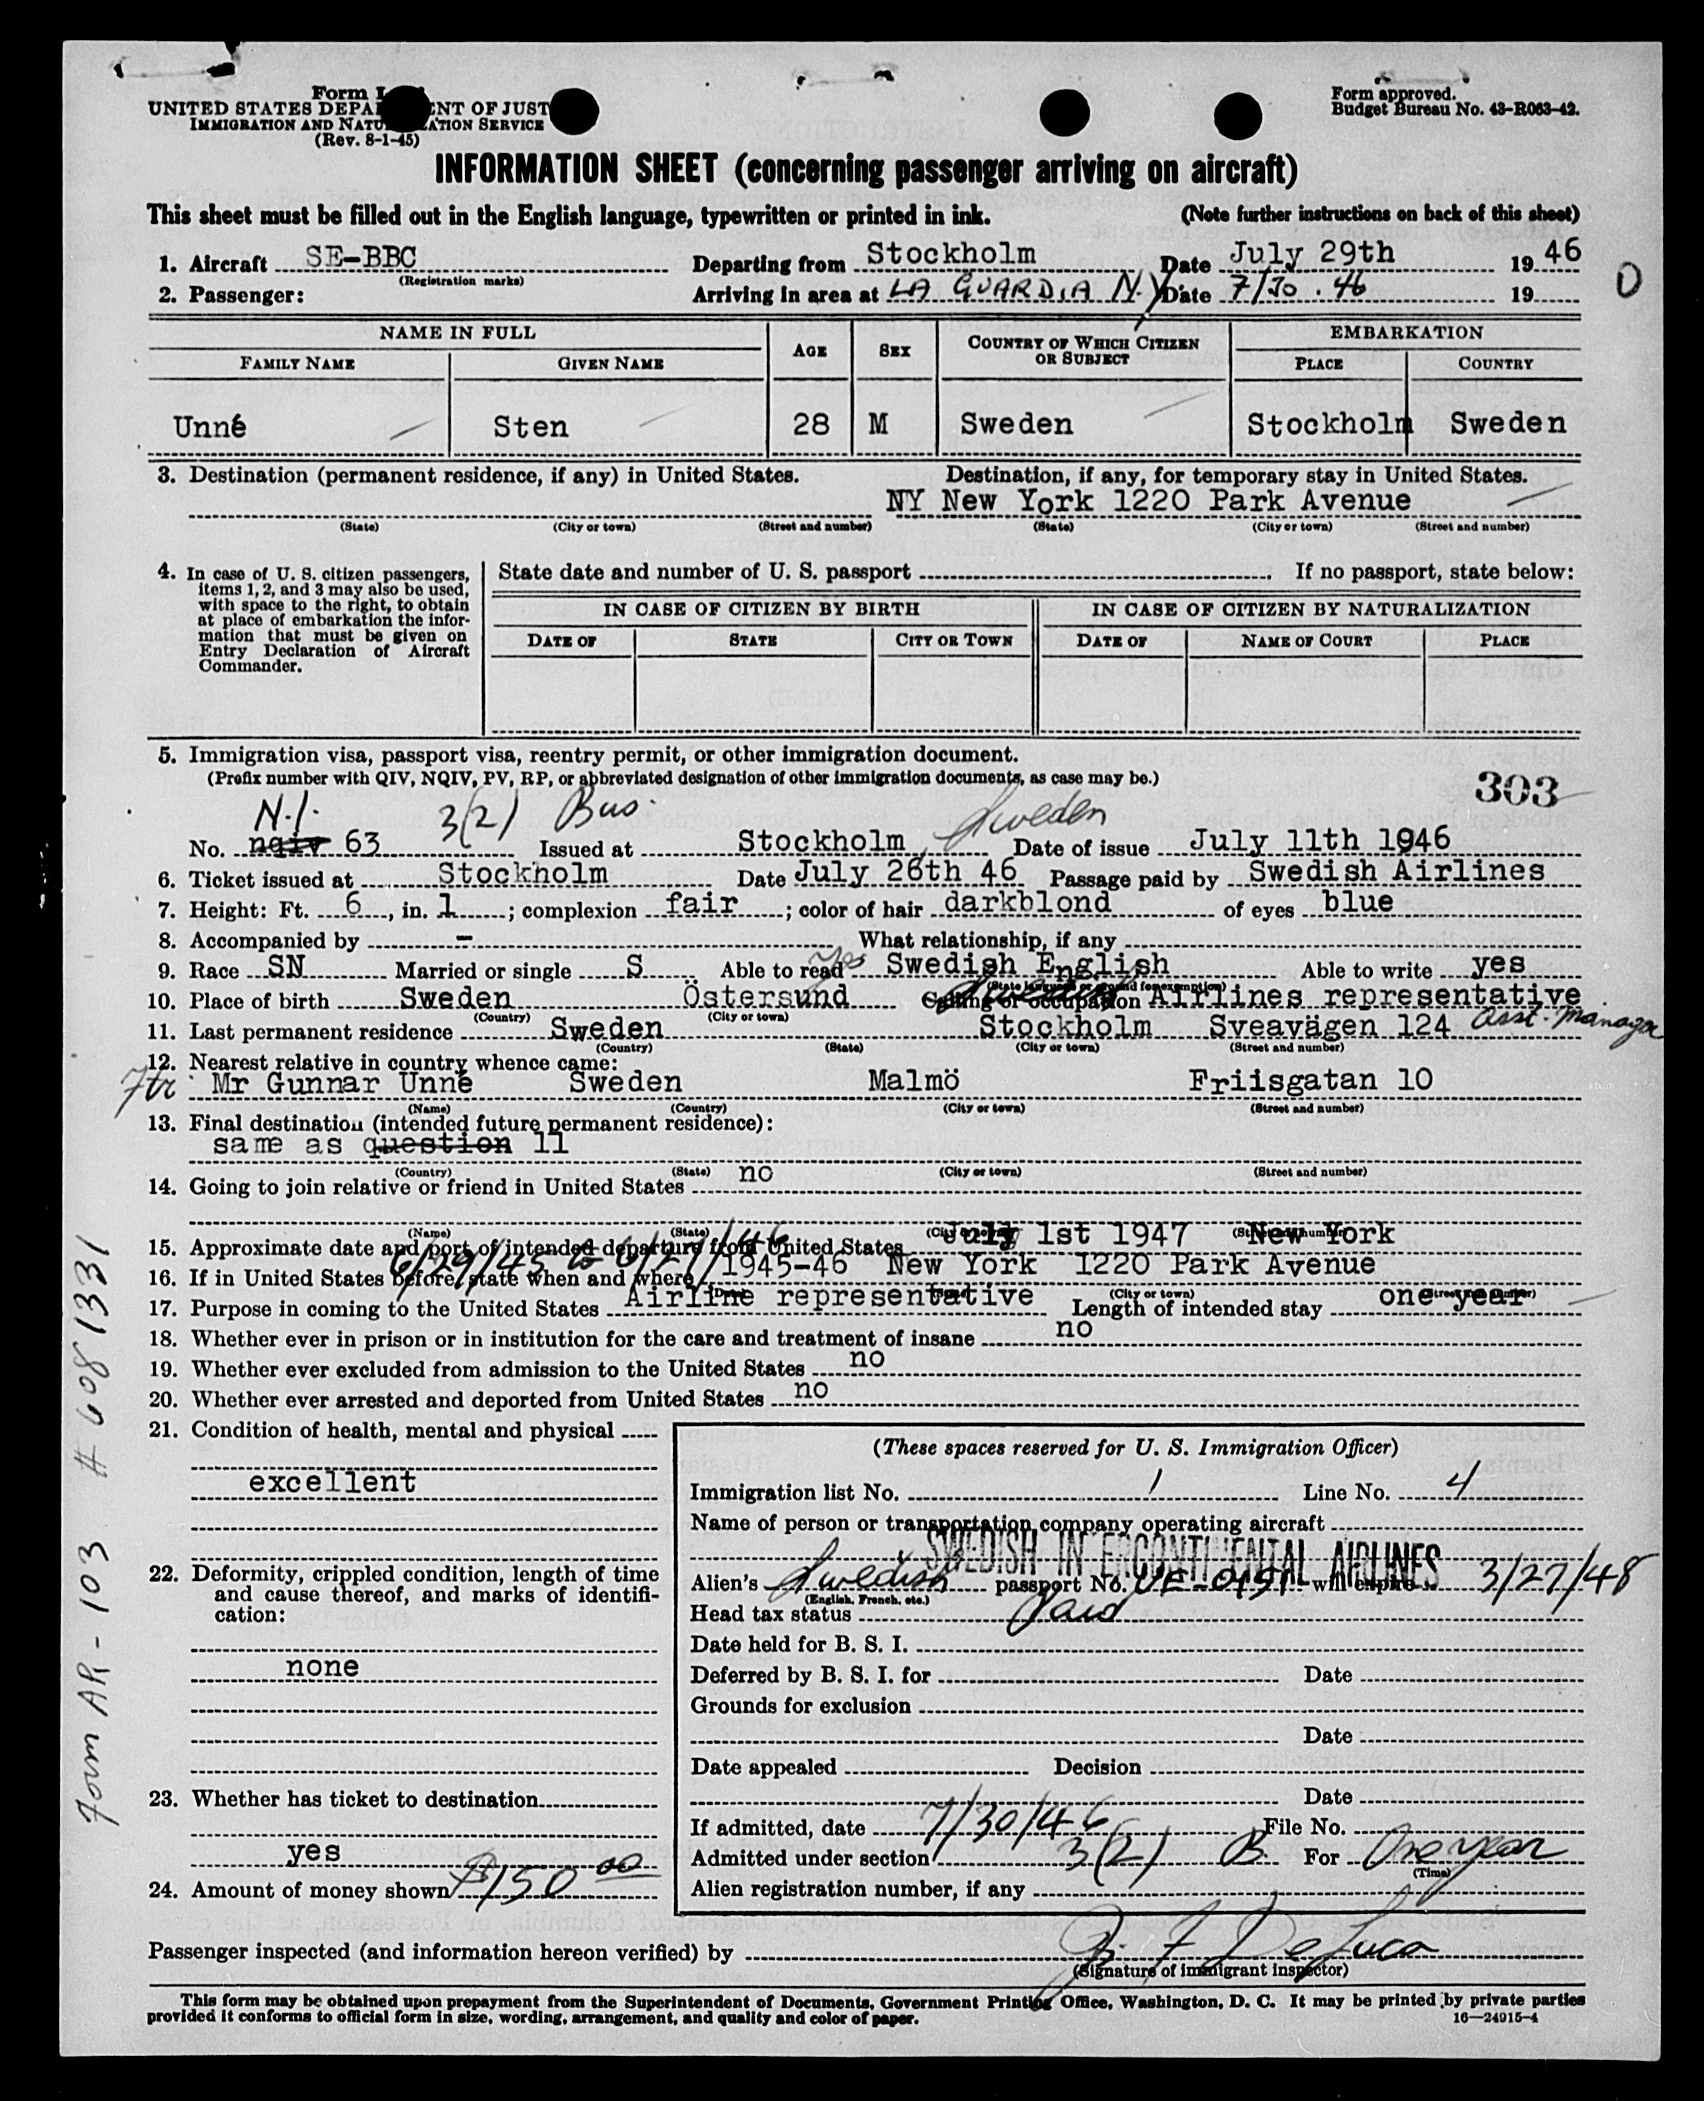 Form I-
UNITED STATES DEPA NT OF JUST
IMMIGRATION AND NATU ATION SERVICE
(Rev. 8-1-45)
Form approved.
Budget Bureau No. 43-R063-42.
INFORMATION SHEET (concerning passenger arriving on aircraft)
This sheet must be filled out in the English language, typewritten or printed in ink. (Note further instructions on back of this sheet)
1. Aircraft SE-BBC Departing from Stockholm Date July 29th 1946
(Registration marks)
2. Passenger: Arriving in area at LA GUARDIA N.Y. Date 7/30.46 19
NAME IN FULL AGE SEX COUNTRY OF WHICH CITIZEN OR SUBJECT EMBARKATION
FAMILY NAME GIVEN NAME PLACE COUNTRY
Unné Sten 28 M Sweden Stockholm Sweden
3. Destination (permanent residence, if any) in United States. Destination, if any, for temporary stay in United States.
NY New York 1220 Park Avenue
(State) (City or town) (Street and number) (State) (City or town) (Street and number)
4. In case of U. S. citizen passengers, items 1, 2, and 3 may also be used, with space to the right, to obtain at place of embarkation the information that must be given on Entry Declaration of Aircraft Commander.
State date and number of U. S. passport . If no passport, state below:
IN CASE OF CITIZEN BY BIRTH IN CASE OF CITIZEN BY NATURALIZATION
DATE OF STATE CITY OR TOWN DATE OF NAME OF COURT PLACE
5. Immigration visa, passport visa, reentry permit, or other immigration document.
(Prefix number with QIV, NQIV, PV, RP, or abbreviated designation of other immigration documents, as case may be.)
303
N.I. 3(2) Bus. Sweden
No. nqiv 63 Issued at Stockholm, Date of issue July 11th 1946
6. Ticket issued at Stockholm Date July 26th 46 Passage paid by Swedish Airlines
7. Height: Ft. 6, in. 1; complexion fair; color of hair darkblond of eyes blue
8. Accompanied by - What relationship, if any
9. Race SN Married or single S Able to read Yes Swedish English Able to write yes
(State language or ground for exemption)
10. Place of birth Sweden Östersund Calling or occupation Airlines representative
(Country) (City or town)
Asst. Manager
11. Last permanent residence Sweden Stockholm Sveavägen 124
(Country) (State) (City or town) (Street and number)
12. Nearest relative in country whence came:
Ftr Mr Gunnar Unné Sweden Malmö Friisgatan 10
(Name) (Country) (City or town) (Street and number)
13. Final destination (intended future permanent residence):
same as question 11
(Country) (State) (City or town) (Street and number)
14. Going to join relative or friend in United States no
(Name) (State) (City or town) (Street and number)
15. Approximate date and port of intended departure from United States July 1st 1947 New York
6/29/45 to 6/27/46
16. If in United States before, state when and where 1945-46 New York 1220 Park Avenue
(Date) (State) (City or town) (Street and number)
17. Purpose in coming to the United States Airline representative Length of intended stay one year
18. Whether ever in prison or in institution for the care and treatment of insane no
19. Whether ever excluded from admission to the United States no
20. Whether ever arrested and deported from United States no
21. Condition of health, mental and physical
excellent
22. Deformity, crippled condition, length of time and cause thereof, and marks of identification:
none
23. Whether has ticket to destination
yes
24. Amount of money shown $150 00
(These spaces reserved for U. S. Immigration Officer)
Immigration list No. 1 Line No. 4
Name of person or transportation company operating aircraft
SWEDISH INTERCONTINENTAL AIRLINES
Alien's Swedish passport No. UE-0191 will expire 3/27/48
(English, French, etc.)
Head tax status Paid
Date held for B. S. I.
Deferred by B. S. I. for Date
Grounds for exclusion
Date
Date appealed Decision
Date
If admitted, date 7/30/46 File No.
Admitted under section 3(2) B. For One year
(Time)
Alien registration number, if any
Passenger inspected (and information hereon verified) by F DeLuca
(Signature of immigrant inspector)
This form may be obtained upon prepayment from the Superintendent of Documents, Government Printing Office, Washington, D. C. It may be printed by private parties
provided it conforms to official form in size, wording, arrangement, and quality and color of paper.
16—24915-4
Form AR-103 # 6081331